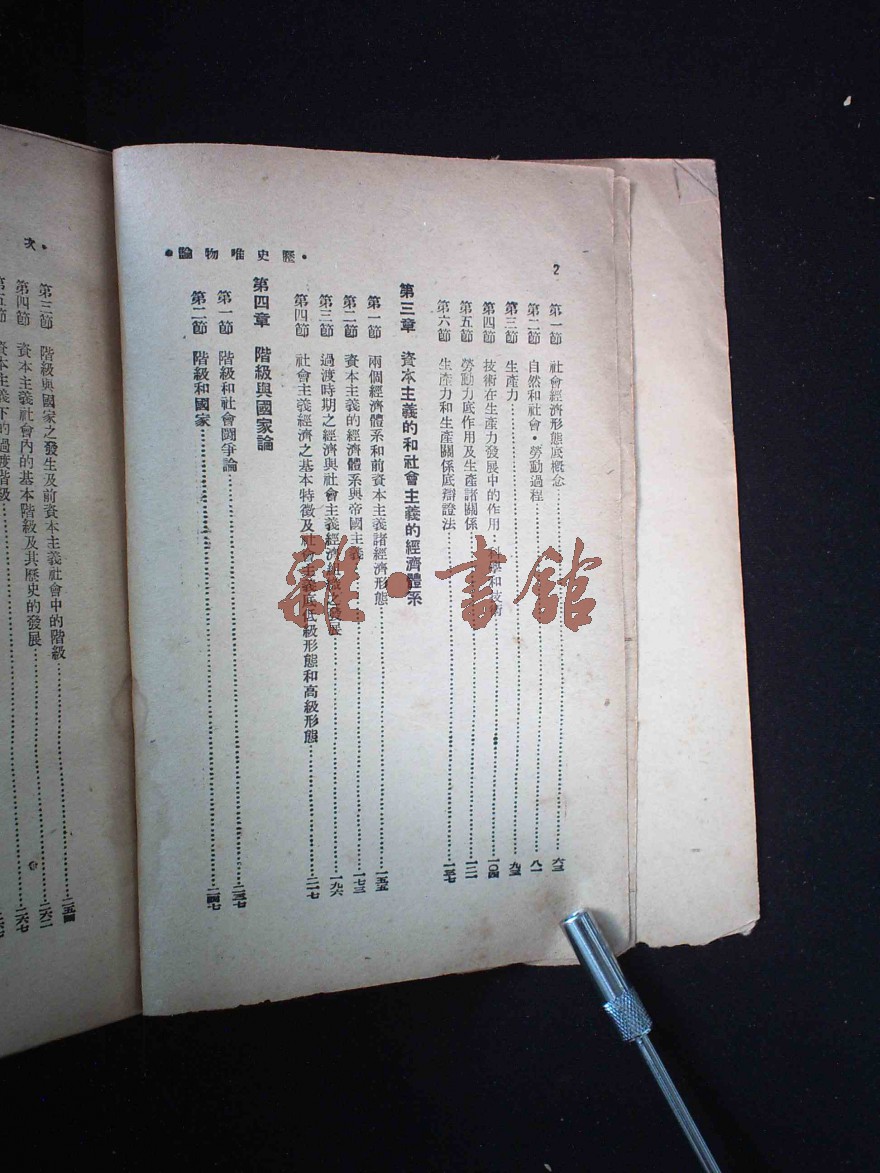 2
•歷史唯物論•
第一節 社會經濟形態底概念……六三
第二節 自然和社會•勞動過程……八一
第三節 生產力……九三
第四節 技術在生產力發展中的作用•科學和技術……一〇四
第五節 勞動力底作用及生產諸關係……一二一
第六節 生產力和生產關係底辯證法……一三七
第三章 資本主義的和社會主義的經濟體系
第一節 兩個經濟體系和前資本主義諸經濟形態……一五五
第二節 資本主義的經濟體系與帝國主義……一七三
第三節 過渡時期之經濟與社會主義經濟組織之發展……一九六
第四節 社會主義經濟之基本特徵及社會主義底低級形態和高級形態……二一七
第四章 階級與國家論
第一節 階級和社會鬪爭論……二三七
第二節 階級和國家……二四七
次•
第三節 階級與國家之發生及前資本主義社會中的階級……二五四
第四節 資本主義社會內的基本階級及其歷史的發展……二六二
第五節 資本主義下的過渡階級……二六七
雜•書館